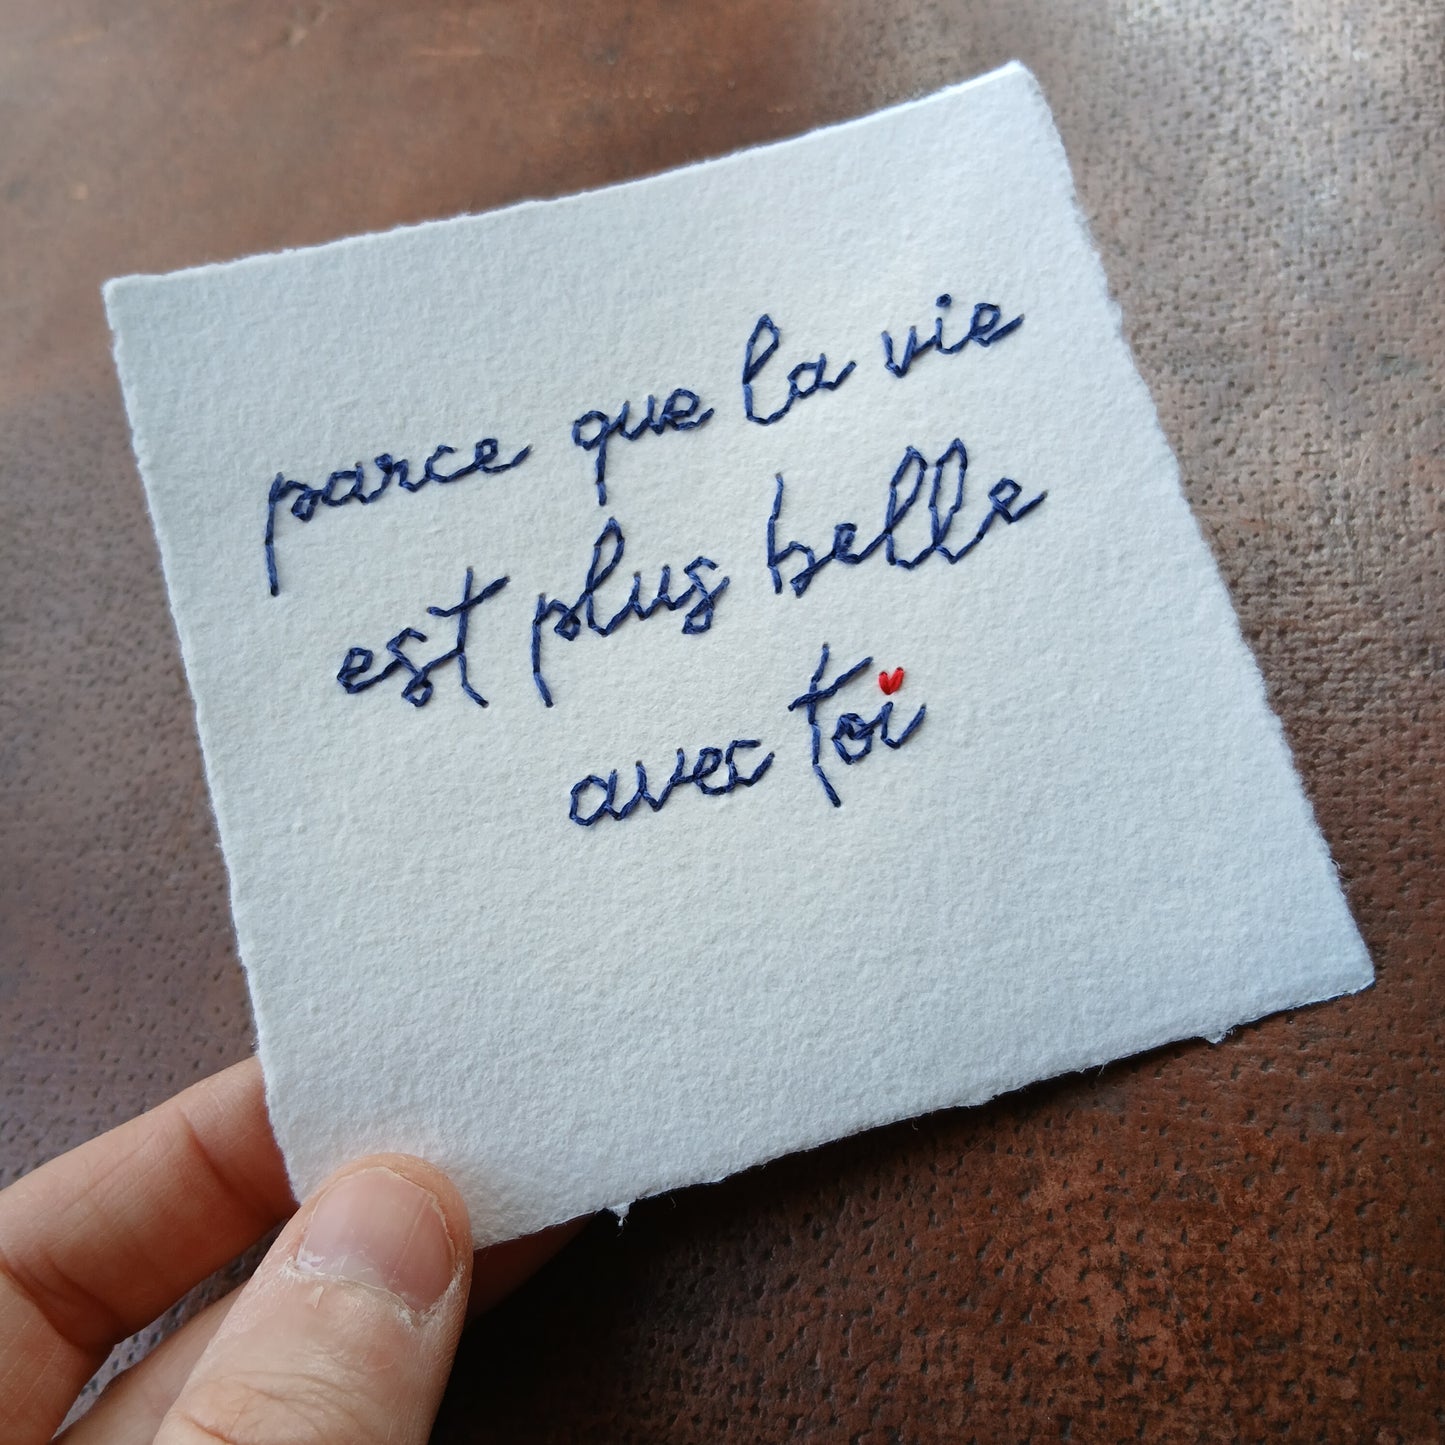 parce que la vie
est plus belle
avec toi